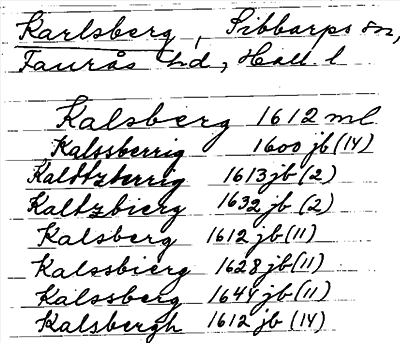 Karlsberg, Sibbarps sn,
Faurås hd, Hall. l
Kalsberg 1612 ml
Kalssberrig 1600 jb (14)
Kalttzberrig 1613 jb (2)
Kaltzbierg 1632 jb (2)
Kalsberg 1612 jb (11)
Kalssbierg 1628 jb (11)
Kalssberg 1644 jb (11)
Kalsbergh 1612 jb (14)